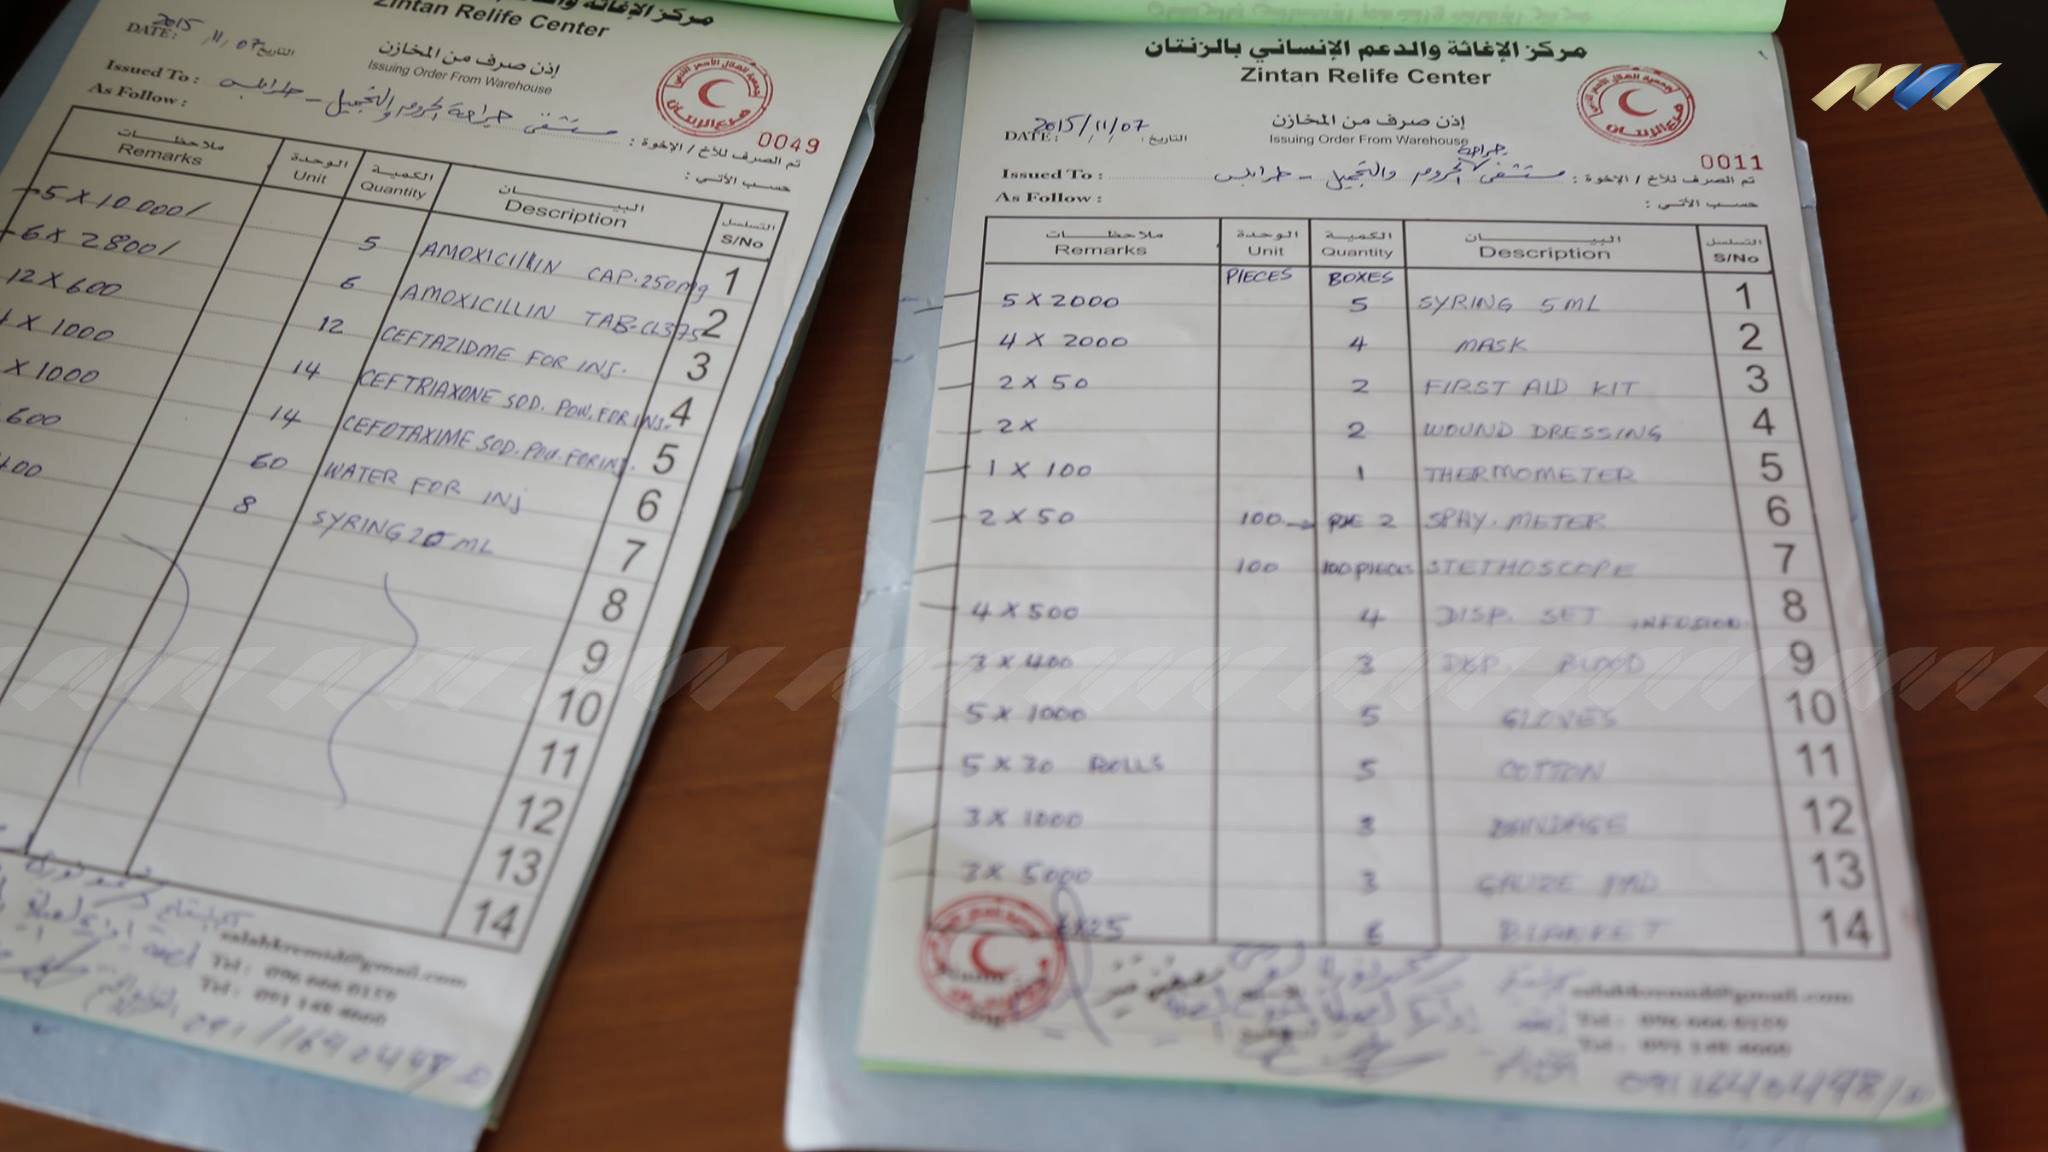 مركز الإغاثة والدعم
Zintan Relife Center
DATE: 2015/11/07 التاريخ:
إذن صرف من المخازن
Issuing Order From Warehouse
0049
Issued To: مستشفى جراحة الحروق والتجميل - طرابلس تم الصرف للأخ / الإخوة:
As Follow: حسب الأتي:
ملاحظات الوحدة الكمية البيـــان التسلسل
Remarks Unit Quantity Description S/No
5 X 10 000/ 5 AMOXICILLIN CAP. 250mg 1
6 X 2800/ 6 AMOXICILLIN TAB. CL375 2
12 X 600 12 CEFTAZIDME FOR INJ. 3
X 1000 14 CEFTRIAXONE SOD. POW. FOR INJ. 4
X 1000 14 CEFOTAXIME SOD. POW. FOR INJ. 5
600 60 WATER FOR INJ 6
400 8 SYRING 20 ML 7
8
9
10
11
12
13
14
salahkremid@gmail.com
Tel: 096 666 0159
Tel: 091 148 4660
مركز الإغاثة والدعم الإنساني بالزنتان
Zintan Relife Center
إذن صرف من المخازن
Issuing Order From Warehouse
DATE: 2015/11/07 التاريخ:
0011
Issued To: مستشفى جراحة الحروق والتجميل - طرابلس تم الصرف للأخ / الإخوة:
As Follow: حسب الأتي:
ملاحظات الوحدة الكمية البيـــان التسلسل
Remarks Unit Quantity Description S/No
PIECES BOXES
5 X 2000 5 SYRING 5 ML 1
4 X 2000 4 MASK 2
2 X 50 2 FIRST AID KIT 3
2 X 2 WOUND DRESSING 4
1 X 100 1 THERMOMETER 5
2 X 50 100 2 SPHY. METER 6
100 100 PIECES STETHOSCOPE 7
4 X 500 4 DISP. SET INFUSION 8
3 X 400 3 DISP. BLOOD 9
5 X 1000 5 GLOVES 10
5 X 30 ROLLS 5 COTTON 11
3 X 1000 3 BANDAGE 12
3 X 5000 3 GAUZE PAD 13
6X25 6 BLANKET 14
salahkremid@gmail.com
Tel: 096 666 0159
Tel: 091 148 4660